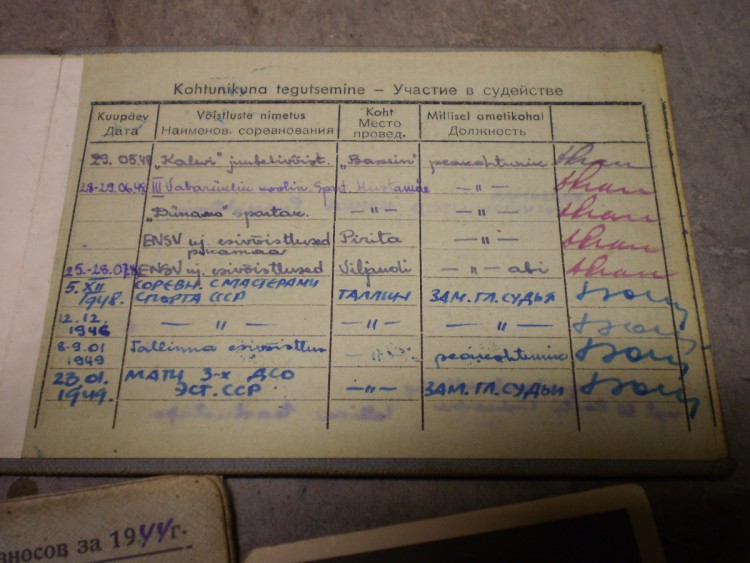 Kohtunikuna tegutsemine – Участие в судействе
Kuupäev Дата
Võistluste nimetus Наименов. соревнования
Koht Место провед.
Millisel ametikohal Должность
29. 05.48 „Kalevi" juubelivõist. „Bassein" peakohtunik
28-29.06.48 III Vabariiklik koolin. Spart. Mustamäe — " —
„Dünamo" spartak. — " — — " —
ENSV uj. esivõistlused Pirita — " —
pikamaa
25.-28.07.48 ENSV uj. esivõistlused Viljandi — " — abi
5. XII 1948. СОРЕВН. С МАСТЕРАМИ СПОРТА СССР ТАЛЛИН ЗАМ. ГЛ. СУДЬЯ
12.12. 1948 — " — — " — — " —
8-9.01 1949 Tallinna esivõistlus — " — peakohtunik
23.01. 1949. МАТЧ 3-х ДСО ЭСТ. ССР — " — ЗАМ. ГЛ. СУДЬИ
взносов за 1944 г.